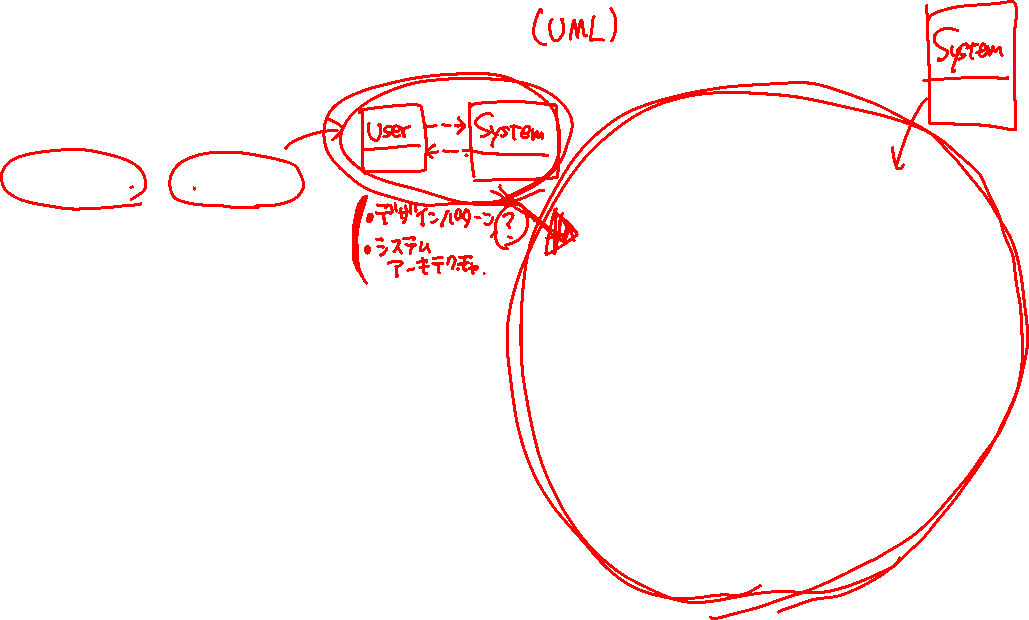 (UML)
System
User
System
・デザインパターン?
・システム
アーキテクチャ.